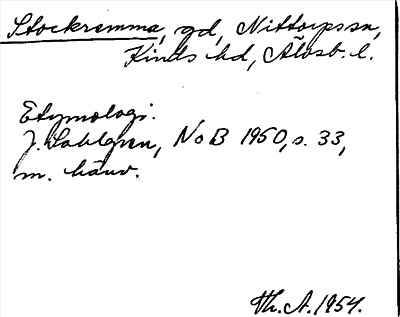 Stockremma, gd, Nittorps sn,
Kinds hd, Älvsb. l.
Etymologi.
J. Sahlgren, NoB 1950, s. 33,
m. hänv.
Th. A. 1954.